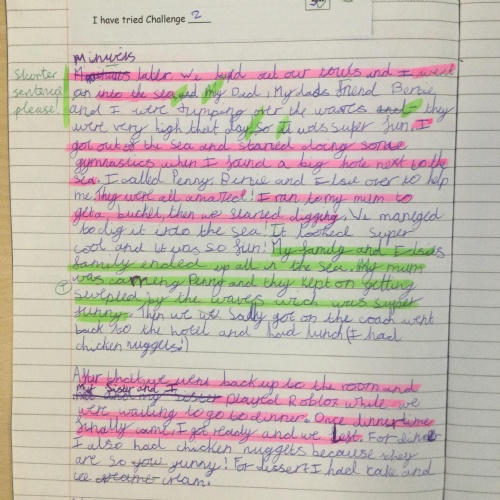 I have tried Challenge 2
minutes
later we layd out our towls and I went
shorter
sentences
please!
an into the sea and my Dad, My dads friend Bernie,
and I were jumping over the waves and they
were very high that day, So it was super fun. I
got out of the sea and started doing some
gymnastics when I found a big hole next to the
sea. I called Penny, Bernie and Elsie over to help
me. They were all amazed! I ran to my mum to
get a bucket, then we started digging. We manged
to dig it into the sea! It looked super
cool and it was so fun! My family and Elsies
family ended up all in the sea. My mum
was carrying Penny and they kept on getting
sweipted by the waves wich was super
funny. Then we we sadly got on the coach went
back to the hotel and had lunch (I had
chicken nuggets!)
After that we went back up to the room and
My Sister and I
played Roblox while we
were waiting to go to dinner. Once dinner time
finally came, I got ready and we left. For dinner
I also had chicken nuggets because they
are so yummy! For dissert I had cake and
ice cream.